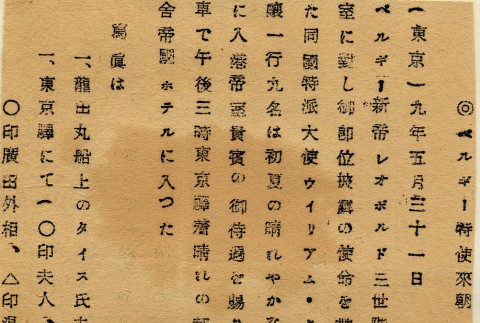 ◎ベルギー特使來朝
一東京一九年五月三十一日
ベルギー新帝レオポルド三世陛
室に對し御即位披露の使命を
た同國特派大使ウイリアム・
孃一行九名は初夏の晴れやかな
に入港帝室貴賓の御待遇を賜り
車で午後三時東京驛着晴れの
舍帝國ホテルに入つた
寫眞は
一、龍田丸船上のタイス氏夫
一、東京驛にて一〇印夫人、
〇印廣田外相、△印